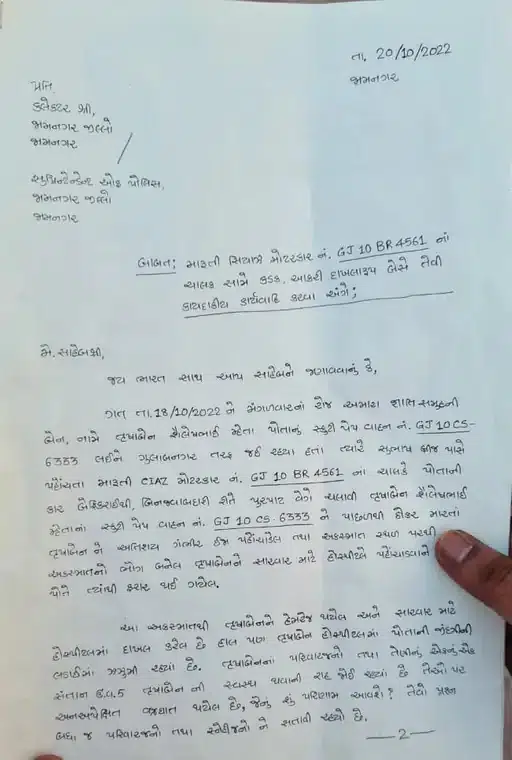 તા. 20/10/2022
જામનગર
પ્રતિ,
કલેકટર શ્રી,
જામનગર જીલ્લો
જામનગર
સુપ્રિન્ટેન્ડેન્ટ ઓફ પોલિસ,
જામનગર જીલ્લો
જામનગર
બાબત: મારૂતી સિયાઝ મોટરકાર નં. GJ 10 BR 4561 નાં
ચાલક સામે કડક, આકરી દાખલારૂપ બેસે તેવી
કાયદાકીય કાર્યવાહિ કરવા અંગે;
મે. સાહેબશ્રી,
જય ભારત સાથ આપ સાહેબને જણાવવાનું કે,
ગત તા. 18/10/2022 ને મંગળવારનાં રોજ અમારા જ્ઞાતિ સમૂહની
બેન, નામે તૃષાબેન શૈલેષભાઈ મહેતા પોતાનું સ્કુટી પેપ વાહન નં. GJ 10 CS-
6333 લઈને ગુલાબનગર તરફ જઈ રહ્યા હતાં ત્યારે સુભાષ બ્રીજ પાસે
પહોંચતા મારૂતી CIAZ મોટરકાર નં. GJ 10 BR 4561 ના ચાલકે પોતાની
કાર બેફિકરાઈથી, બિનજવાબદારી રીતે પુરપાટ વેગે ચલાવી તૃષાબેન શૈલેષભાઈ
મહેતાનાં સ્કુટી પેપ વાહન નં. GJ 10 CS-6333 ને પાછળથી ઠોકર મારતાં
તૃષાબેન ને અતિશય ગંભીર ઈજા પહોંચાડેલ તથા અકસ્માત સ્થળ પરથી
અકસ્માતનો ભોગ બનેલ તૃષાબેનને સારવાર માટે હોસ્પીટલે પહોંચાડવાને
પોતે ત્યાંથી ફરાર થઈ ગયેલ.
આ અકસ્માતથી તૃષાબેનને હેમરેજ થયેલ અને સારવાર માટે
હોસ્પીટલમાં દાખલ કરેલ છે હાલ પણ તૃષાબેન હોસ્પીટલમાં પોતાની જીંદગીની
લડાઈમાં ઝઝુમી રહ્યાં છે. તૃષાબેનનાં પરિવારજનો તથા તેણીનું એકનું એક
સંતાન ઉ.વ.5 તૃષાબેન ની સ્વસ્થ થવાની રાહ જોઈ રહ્યાં છે તેઓ પર
અનઅપેક્ષિત વજ્રઘાત થયેલ છે, જેનું શું પરિણામ આવશે? તેવો પ્રશ્ન
બધા જ પરિવારજનો તથા સ્નેહીજનો ને સતાવી રહ્યો છે.
—2—